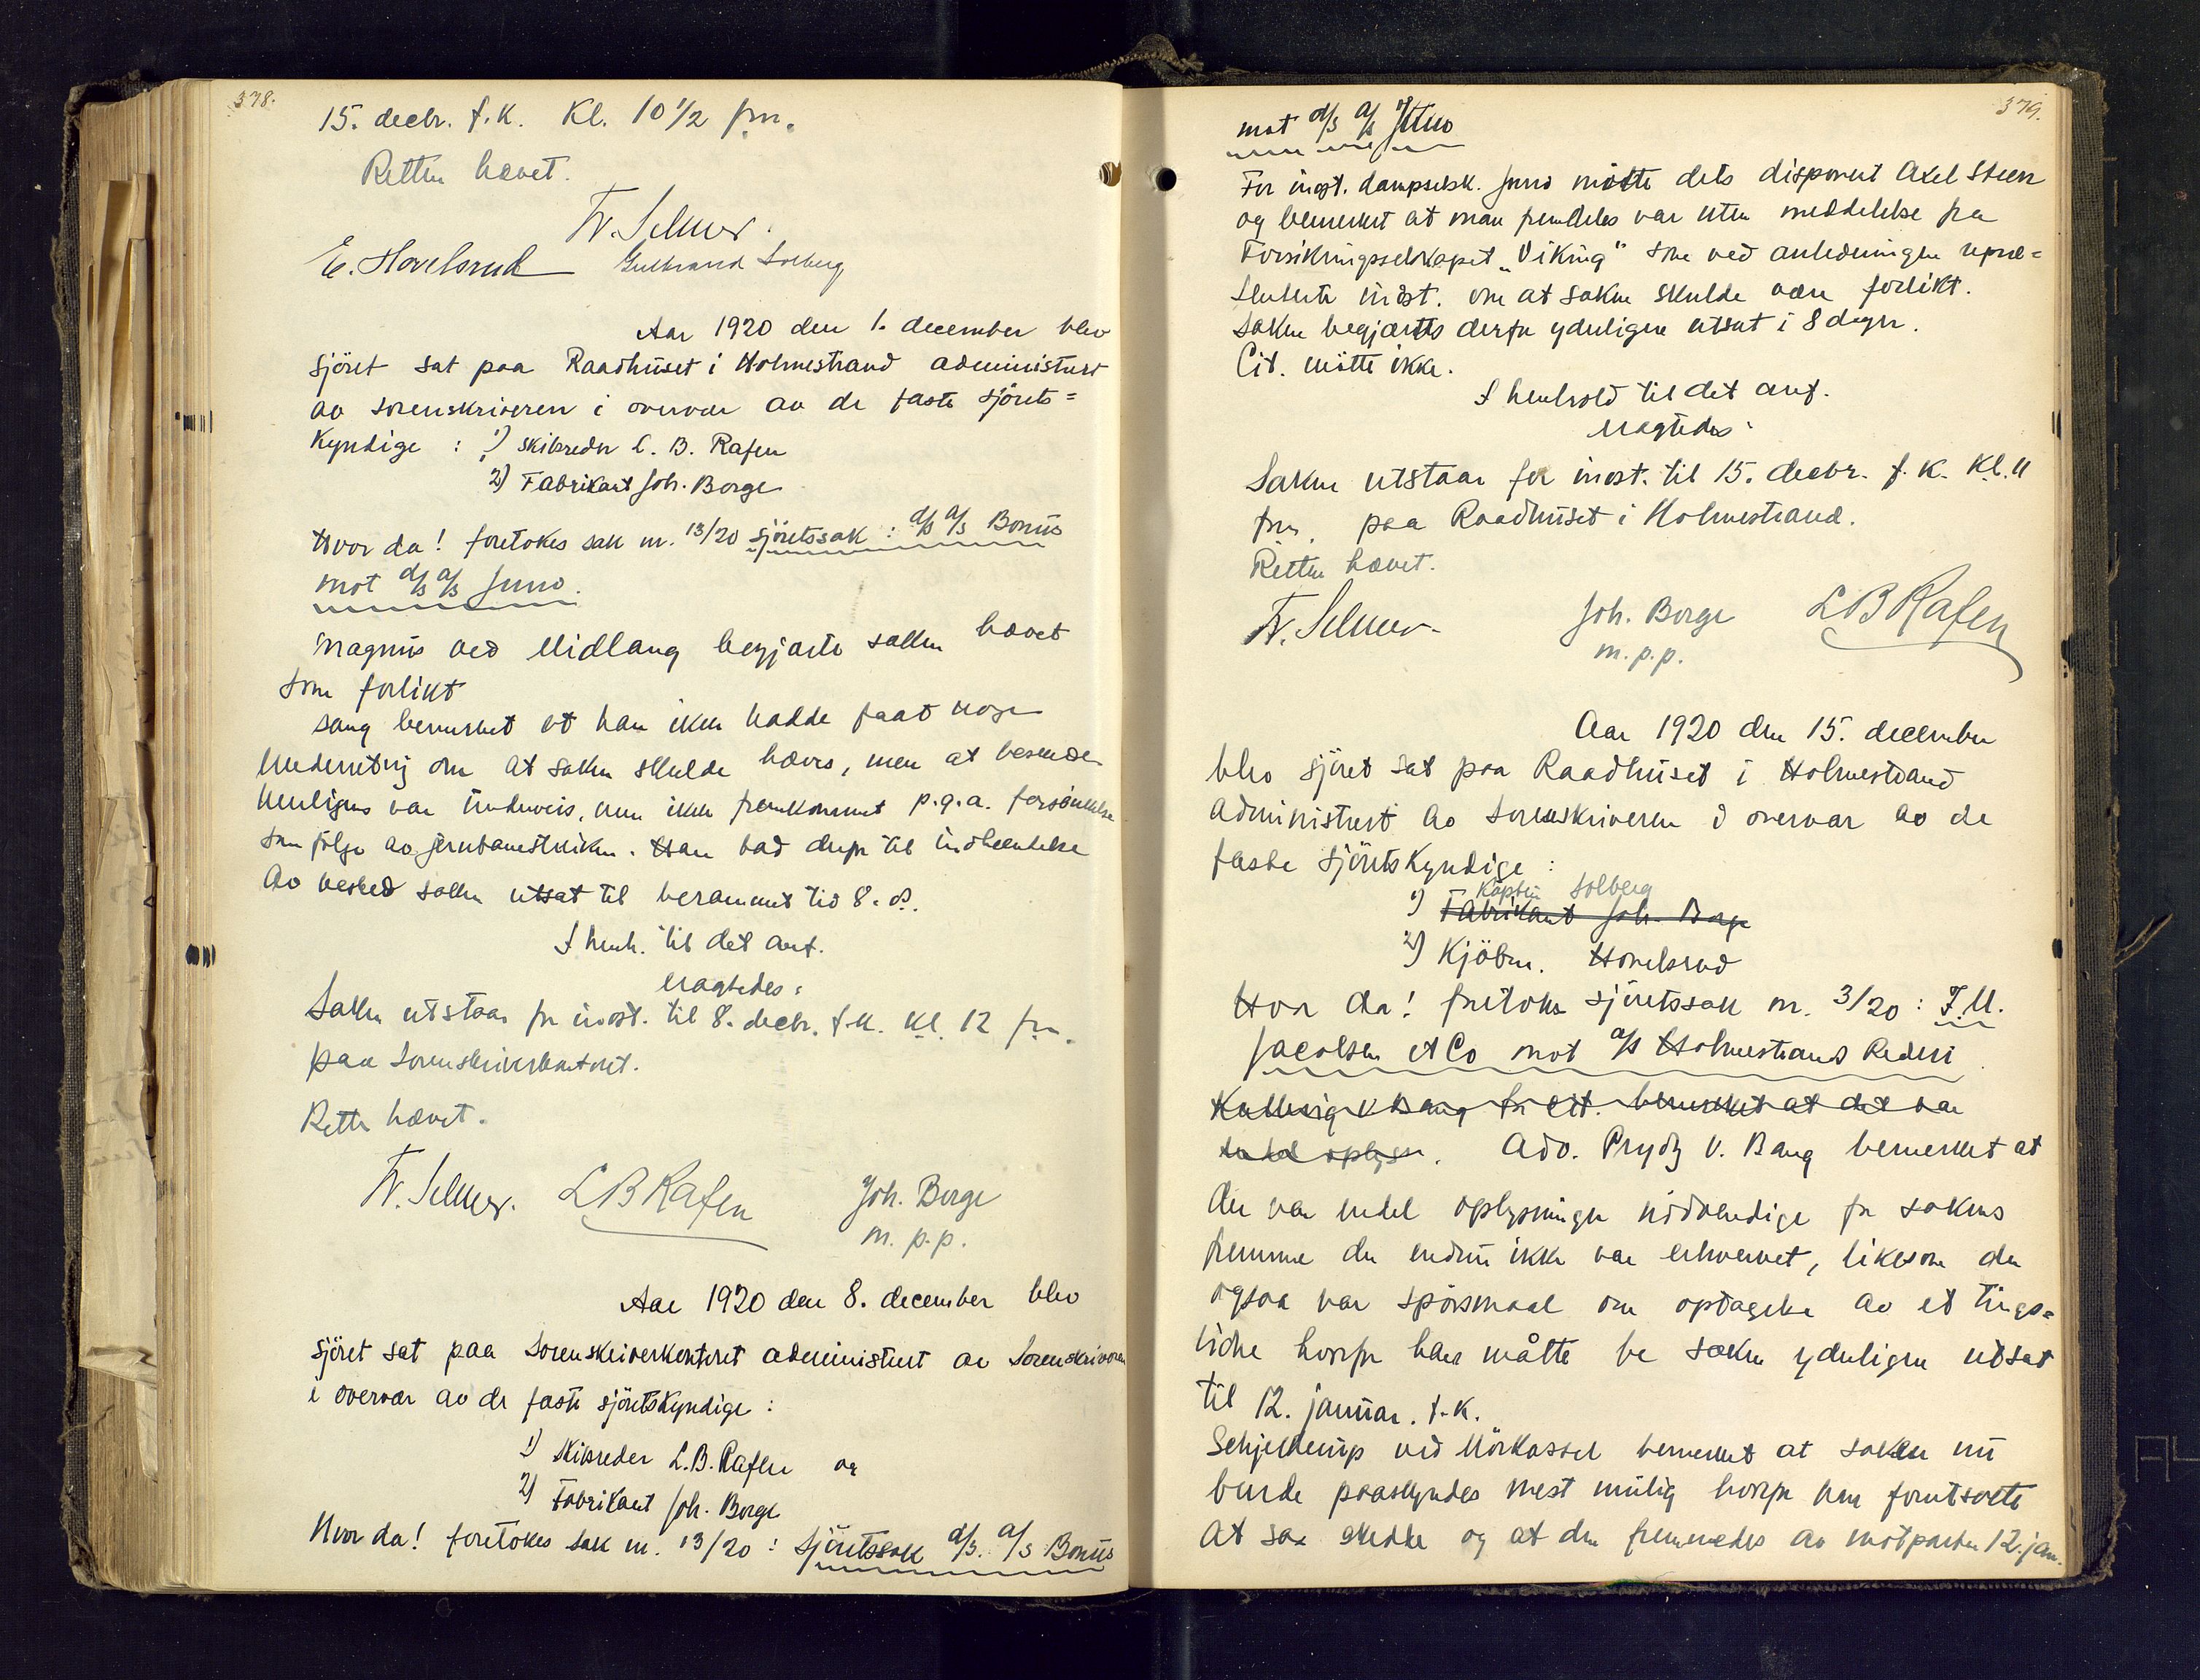 378.
15. decbr. f.k. Kl. 10 1/2 fm.
Retten hævet.
Fr. Selmer.
E. Hovelsrud Gulbrand Solberg
Aar 1920 den 1. december blev
sjöret sat paa Raadhuset i Holmestrand administrert
av sorenskriveren i overvær av de faste sjörets=
kyndige : 1) skibsreder L. B. Rafen
2) Fabrikant Joh. Borge
Hvor da! foretokes sak nr. 13/20 sjöretssak : d/s a/s Bonus
mot d/s a/s Juno.
Magnus ved Midlang begjærte saken hævet
som forlikt
Bang bemerket at han ikke hadde faat noge
underretnig om at saken skulde hæves, men at besende
muligens var underveis, men ikke fremkommet p.g.a. forsinkelse
som følge av jernbanestreiken. Han bad derfor til indhentelse
av besked saken utsat til berammet tid 8. d.
I henh. til det anf.
vagtedes:
Saken utstaar for inost. til 8. decbr. f.k. kl. 12 fm.
paa Sorenskriverkontoret.
Retten hævet.
Fr. Selmer. LB Rafen Joh. Borge
m. p. p.
Aar 1920 den 8. december blev
sjöret sat paa Sorenskriverkontoret administrert av Sorenskriveren
i overvær av de faste sjöretskyndige :
1) Skibsreder L.B. Rafen og
2) Fabrikant Joh. Borge
Hvor da! foretokes sak nr. 13/20 : Sjöretssak d/s. a/s Bonus
379.
mot d/s a/s Juno
For inost. dampselsk. Juno mötte dets disponent Axel Steen
og bemerket at man fremdeles var uten meddelelse fra
Forsikringsselskapet "Viking" som ved anledningen repræ=
senterte inost. om at saken skulde være forlikt.
Saken begjærtes derfor yderligere utsat i 8 dager.
Cit. mötte ikke.
I henhold til det anf.
vagtedes:
Saken utstaar for inost. til 15. decbr. f.k. Kl. 11
fm. paa Raadhuset i Holmestrand.
Retten hævet.
Fr. Selmer. Joh. Borge LB Rafen
m. p. p.
Aar 1920 den 15. december
blev sjöret sat paa Raadhuset i Holmestrand
administrert av Sorenskriveren i overvær av de
faste sjöretskyndige :
Kaptein Solberg
1) Fabrikant Joh. Borge
2) Kjöbm. Hovelsrud
Hvor da! foretokes sjöretssak nr. 3/20 : F.M.
Jacobsen et Co mot a/s Holmestrands Rederi
Kallevig v Bang for Cit. bemerket at det var
endel oplysn. Adv. Prydz v. Bang bemerket at
der var endel oplysninger nödvendige for sakens
fremme der endnu ikke var erhvervet, likesom der
ogsaa var spörsmaal om optagelse av et tings=
vidne hvorfor han måtte be saken yderligere utsat
til 12. januar. f.k.
Schjelderup ved Mörkassel bemerket at saken nu
burde paaskyndes mest mulig hvorfor han forutsatte
at saa skedde og at den fremmedes av motparten 12. jan.